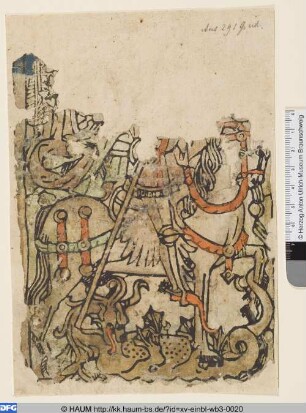 © Herzog Anton Ulrich-Museum Braunschweig
DFG
© HAUM http://kk.haum-bs.de/?id=xv-einbl-wb3-0020